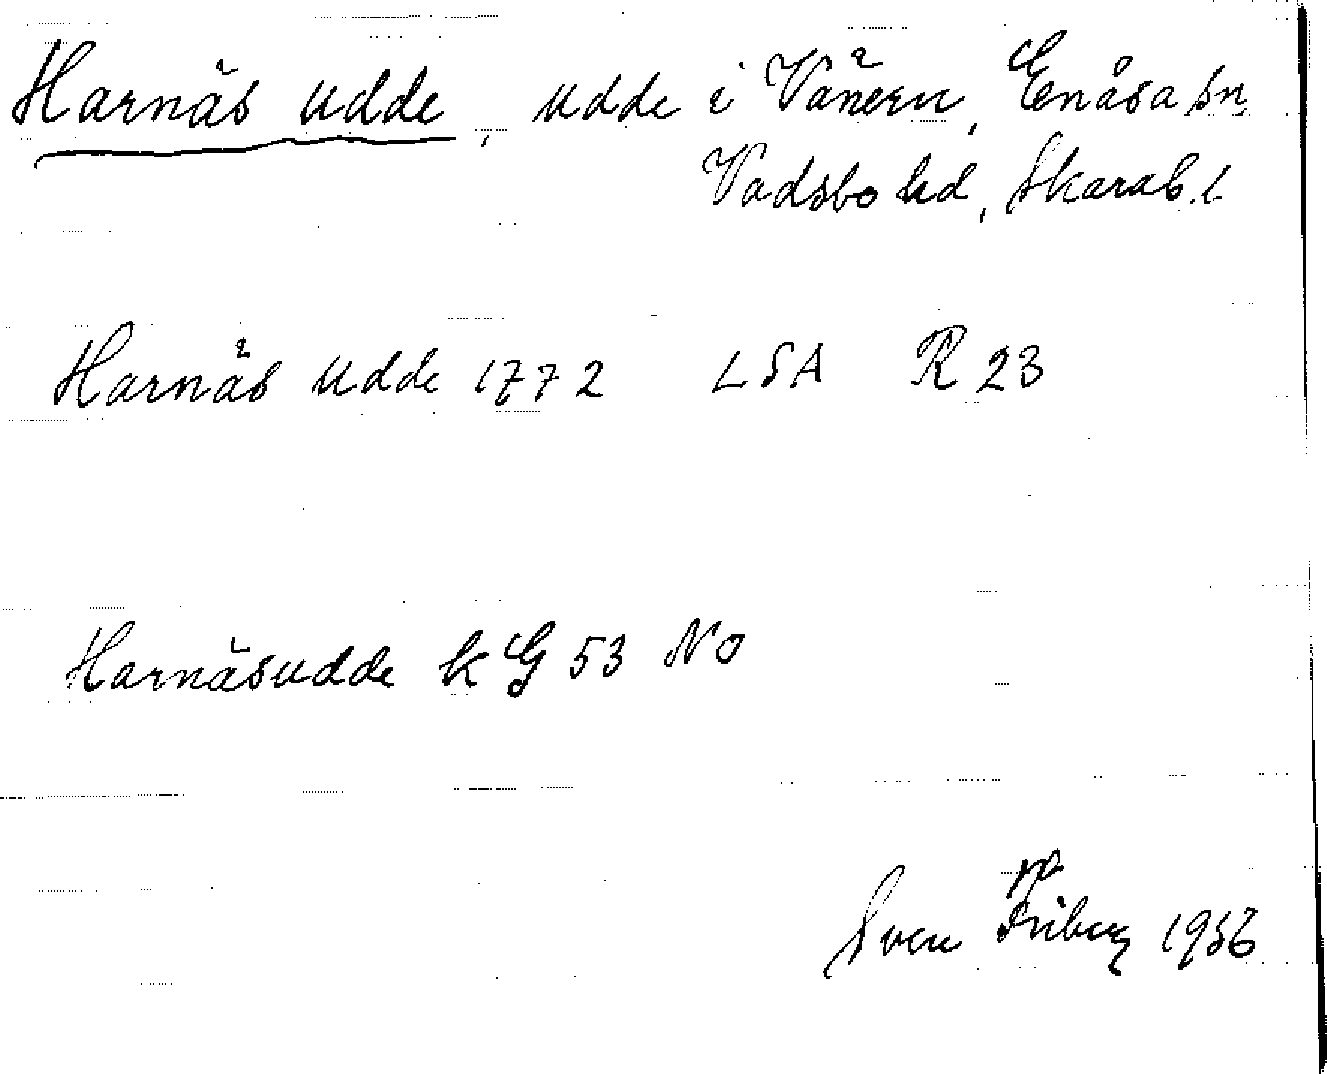 Harnäs udde, udde i Vänern, Enåsa sn,
Vadsbo hd, Skarab. l
Harnäs udde 1772 LSA R 23
Harnäsudde k G 53 No
Sven Friberg 1956